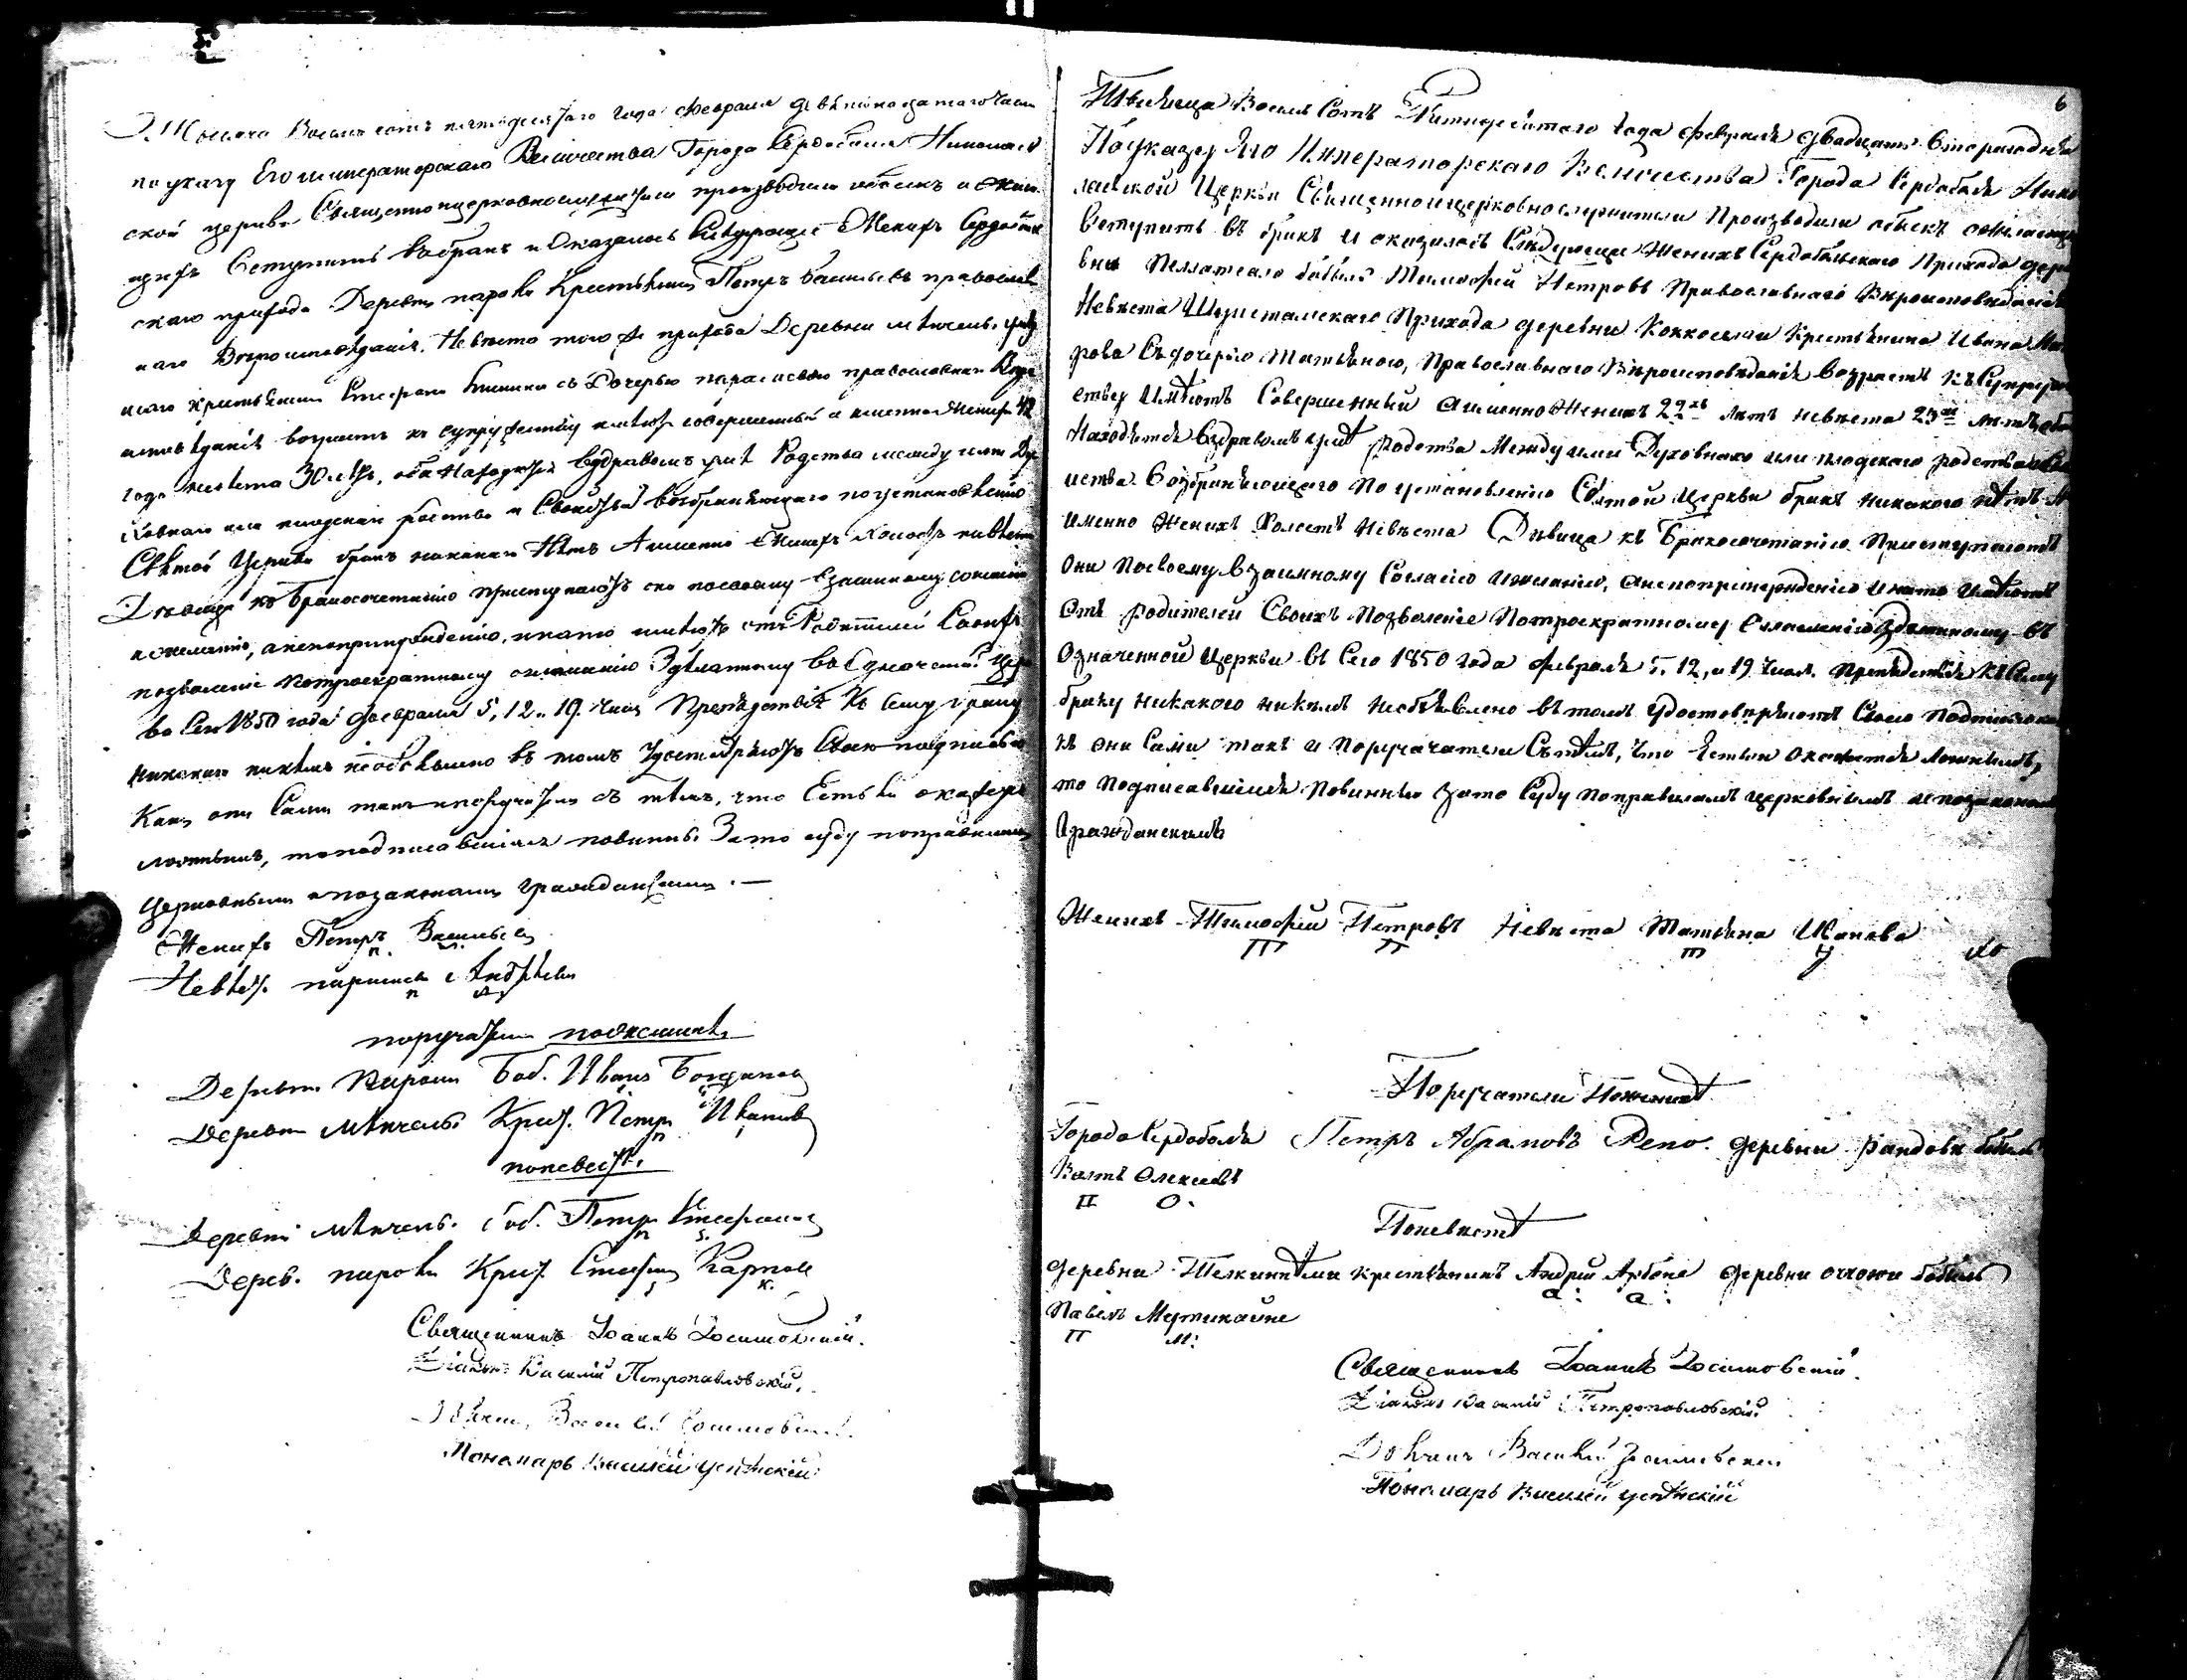 Тысяча Восемь сотъ пятидесятаго года февраля девятнадцатаго числа
по указу Его императорскаго Величества Города Сердоболя Николаев
ской церкви Священноцерковнослужители производили обыскъ о желаю
щихъ вступить въ бракъ и Оказалось Слѣдующее Женихъ Сердоболь
скаго прихода Деревни пароки Крестьянинъ Петръ Васильевъ православ
наго Вѣроисповѣданія. Невѣста того же прихода Деревни мѣнчель.
наго крестьянина съ Дочерью параскевою православнаго Вѣро
исповѣданія возрастъ къ супружеству имѣютъ совершенный а именно Женихъ
года невѣста 30 лѣтъ, оба Находятся въ здравомъ умѣ Родства между ими Ду
ховнаго или плодскаго родства и Свойства возбраняющаго по установленію
Святой Церкви бракъ никакого Нѣтъ А именно Женихъ Холостъ невѣста
Дѣвица къ Бракосочетанію приступаютъ они по своему взаимному согласію
и желанію, а не по принужденію, и на то имѣютъ отъ Родителей Своихъ
позволеніе по троекратному оглашенію Здѣланному въ Означенной Церкви
въ Сем 1850 года февраля 5, 12 и 19. Числ Препядствія Къ Сему браку
никакого никѣмъ не объявлено въ томъ Удостовѣряютъ Своею подписью
Какъ они Сами такъ и поручатели съ тѣмъ, что Естьли окажется
ложнымъ, то подписавшіися повинны За то суду по правиламъ
церковнымъ и по законамъ гражданскимъ. —
Женихъ Петръ Васильевъ
п. в.
Невѣст. параскева Андрѣева
п а
поручатели по женихѣ
Деревни Пароки Боб. Иванъ Богдановъ
Деревни мѣнчель Крест. Петръ Ивановъ
п и
по невѣстѣ.
Деревни мѣнчель. боб. Петръ Стефановъ
п с.
Дерев. пароки Крест. Стефанъ Карповъ
с к.
Священникъ Іоаннъ Зосимовскій.
Діаконъ Василій Петропавловскій.
Дьячекъ Василій Зосимовскій.
Пономарь Василій Успѣнскій
6
Тысяща Восемь Сотъ Пятидесятаго года февраля двадцать втораго дня
По указу Его Императорскаго Величества Города Сердоболя Нико
лаевской Церкви Священноицерковнослужители Производили обыскъ о желающихъ
Вступить въ бракъ и оказалось Слѣдующее Женихъ Сердобольскаго Прихода дере
вни бобыль Тимофей Петровъ Православнаго Вѣроисповѣданія
Невѣста Шуисталмскаго Прихода деревни Коккоселки Крестьянина Ивана
рова Съ дочерью Татьяною, Православнаго Вѣроисповѣданія возрастъ къ Супруже
ству имѣютъ Совершенный а именно Женихъ 22хъ лѣтъ невѣста 23хъ лѣтъ, оба
Находятся въ здравомъ умѣ родства Между ими Духовнаго или плодскаго родства и Свой
иства Возбраняющаго По установленію Святой Церкви бракъ никакого нѣтъ А
именно Женихъ Холостъ Невѣста Дѣвица къ Бракосочетанію Приступаютъ
Они По своему взаимному Согласію и желанію, а не по принужденію и на то имѣютъ
Отъ родителей Своихъ позволеніе По троекратному оглашенію зделанному въ
Означенной Церкви въ Сего 1850 года февраля 5, 12, и 19 Числ. Препядствія къ Сему
браку никакого никѣмъ не объявлено въ томъ удостовѣряютъ Своею подписью ка
къ они Сами такъ и поручатели Съ тѣмъ, что Естьли окажется ложнымъ,
то Подписавшіися Повинны за то Суду по правиламъ церковнымъ и по законамъ
Гражданскимъ
Женихъ Тимофей Петровъ Невѣста Татьяна Иванова
Т П т и
Поручатели По женихѣ
Города Сердоболя Петръ Абрамовъ Репо. деревни Рандова бобыль
Олексѣевъ
О.
По невѣстѣ
деревни крестьянинъ Андрей деревни бобыль
а: а:
Павелъ Мутикайне
П м:
Священникъ Іоаннъ Зосимовскій.
Діаконъ Василій Петропавловскій
Дьячекъ Василій Зосимовскій
Пономарь Василій Успѣнскій